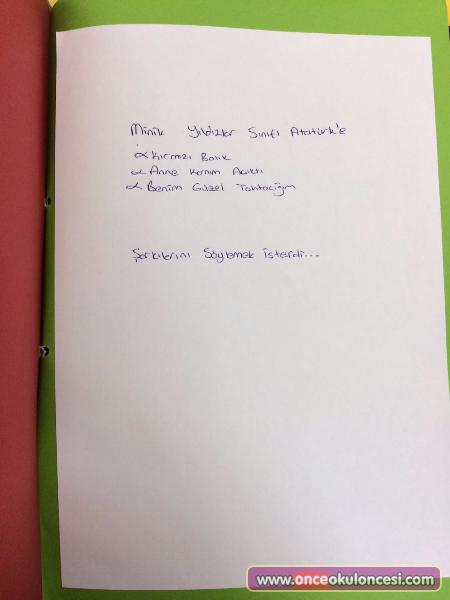 Minik Yıldızlar Sınıfı Atatürk'e
Kırmızı Balık
Anne Karnım Acıktı
Benim Güzel Tahtacığım
Şarkılarını Söylemek isterdi...
www.onceokuloncesi.com